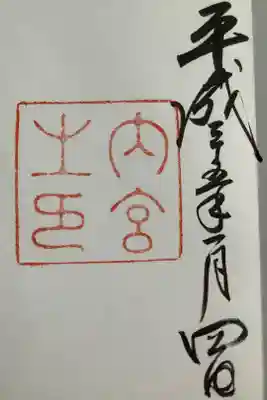 平成二十五年一月四日
内宮
之印